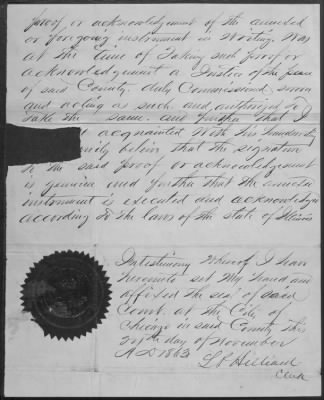 proof or acknowledgement of the annexed
or foregoing instrument in Writing. Was
at the time of Taking such proof or
acknowledgement a Justice of the peace
of said County. duly Commissioned, sworn
and acting as such and authorized to
take the same. and further that I
acquainted With his handwriting
believe that the signature
to the said proof or acknowledgement
is genuine and further that the annexed
instrument is executed and acknowledged
according to the laws of the state of Illinois
In testimony Whereof I have
hereunto set My hand and
affixed the seal of said
Court. at the City of
Chicago in said County this
day of November
AD 1863
L P Hilliard
Clerk